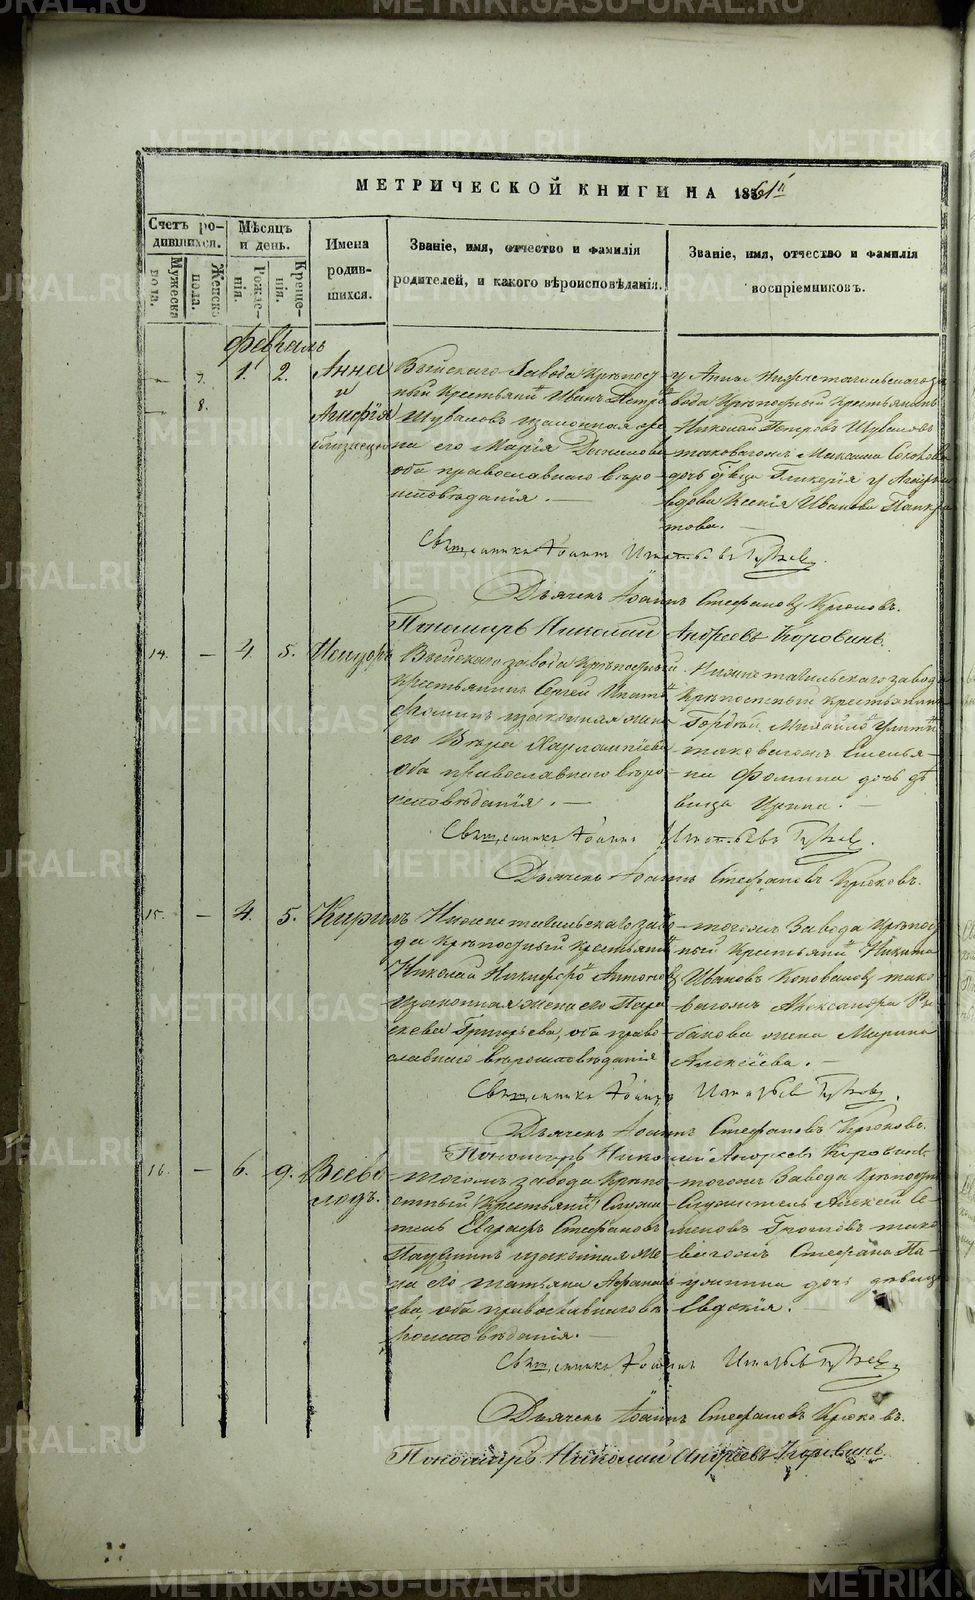 METRIKI.GASO-URAL.RU
МЕТРИЧЕСКОЙ КНИГИ НА 1861й
Счетъ родившихся.
Мужеска пола.
Женска пола.
Мѣсяцъ и день.
Рожденія.
Крещенія.
Имена родившихся.
Званіе, имя, отчество и фамилія родителей, и какого вѣроисповѣданія.
Званіе, имя, отчество и фамилія воспріемниковъ.
Февраль
7. 1. 2. Анна
8. и
близнецы
Выйскаго Завода Крѣпост
ный Крестьянинъ Иванъ Петровъ
Шуваловъ изаконная же
на его Марія
оба православнаго вѣро
исповѣданія. —
у Анны Нижнетагильскаго за
вода Крѣпостный Крестьянинъ
Николай Петровъ Шуваловъ
таковагожъ Максима
дочь дѣвица Гликерія у
вдова Ксенія Иванова Панкра
това. —
Священникъ Іоаннъ
Дьячекъ Іоаннъ Стефановъ Крюковъ.
Пономарь Николай Андреевъ Коровинъ.
14. — 4. 5. Исидоръ
Выйскаго завода Крѣпостный
Крестьянинъ Сергей
Фоминъ изаконная жена
его Вѣра Харлампіева
оба православнаго вѣро
исповѣданія. —
Нижнетагильскаго завода
Крѣпостный Крестьянинъ
Гордѣй Михайловъ
таковагожъ Емелья
на Фомина дочь дѣ
вица Ирина. —
Священникъ Іоаннъ
Дьячекъ Іоаннъ Стефановъ Крюковъ.
15. — 4. 5. Кирилъ
Нижнетагильскаго заво
да Крѣпостный Крестьянинъ
Николай Никифоровъ Антоновъ
изаконная жена его Пара
скева Григорьева, оба право
славнаго вѣроисповѣданія
тогожъ Завода Крѣпост
ный Крестьянинъ Никита
Ивановъ Коноваловъ тако
вагожъ Александра Ры
бакова жена Марина
Алексіева. —
Священникъ Іоаннъ
Дьячекъ Іоаннъ Стефановъ Крюковъ.
Пономарь Николай Андреевъ Коровинъ
16. — 6. 9. Всево
лодъ.
тогожъ завода Крѣпо
стный (Крестьянинъ) Служи
тель Евграфъ Стефановъ
изаконная же
на его Татьяна Афанась
ева, оба православнаго вѣ
роисповѣданія. —
тогожъ Завода Крѣпостный
Служитель Алексей Се
меновъ тако
вагожъ Стефана Па
дочь девица
Евдокія.
Священникъ Іоаннъ
Дьячекъ Іоаннъ Стефановъ Крюковъ.
Пономарь Николай Андреевъ Коровинъ